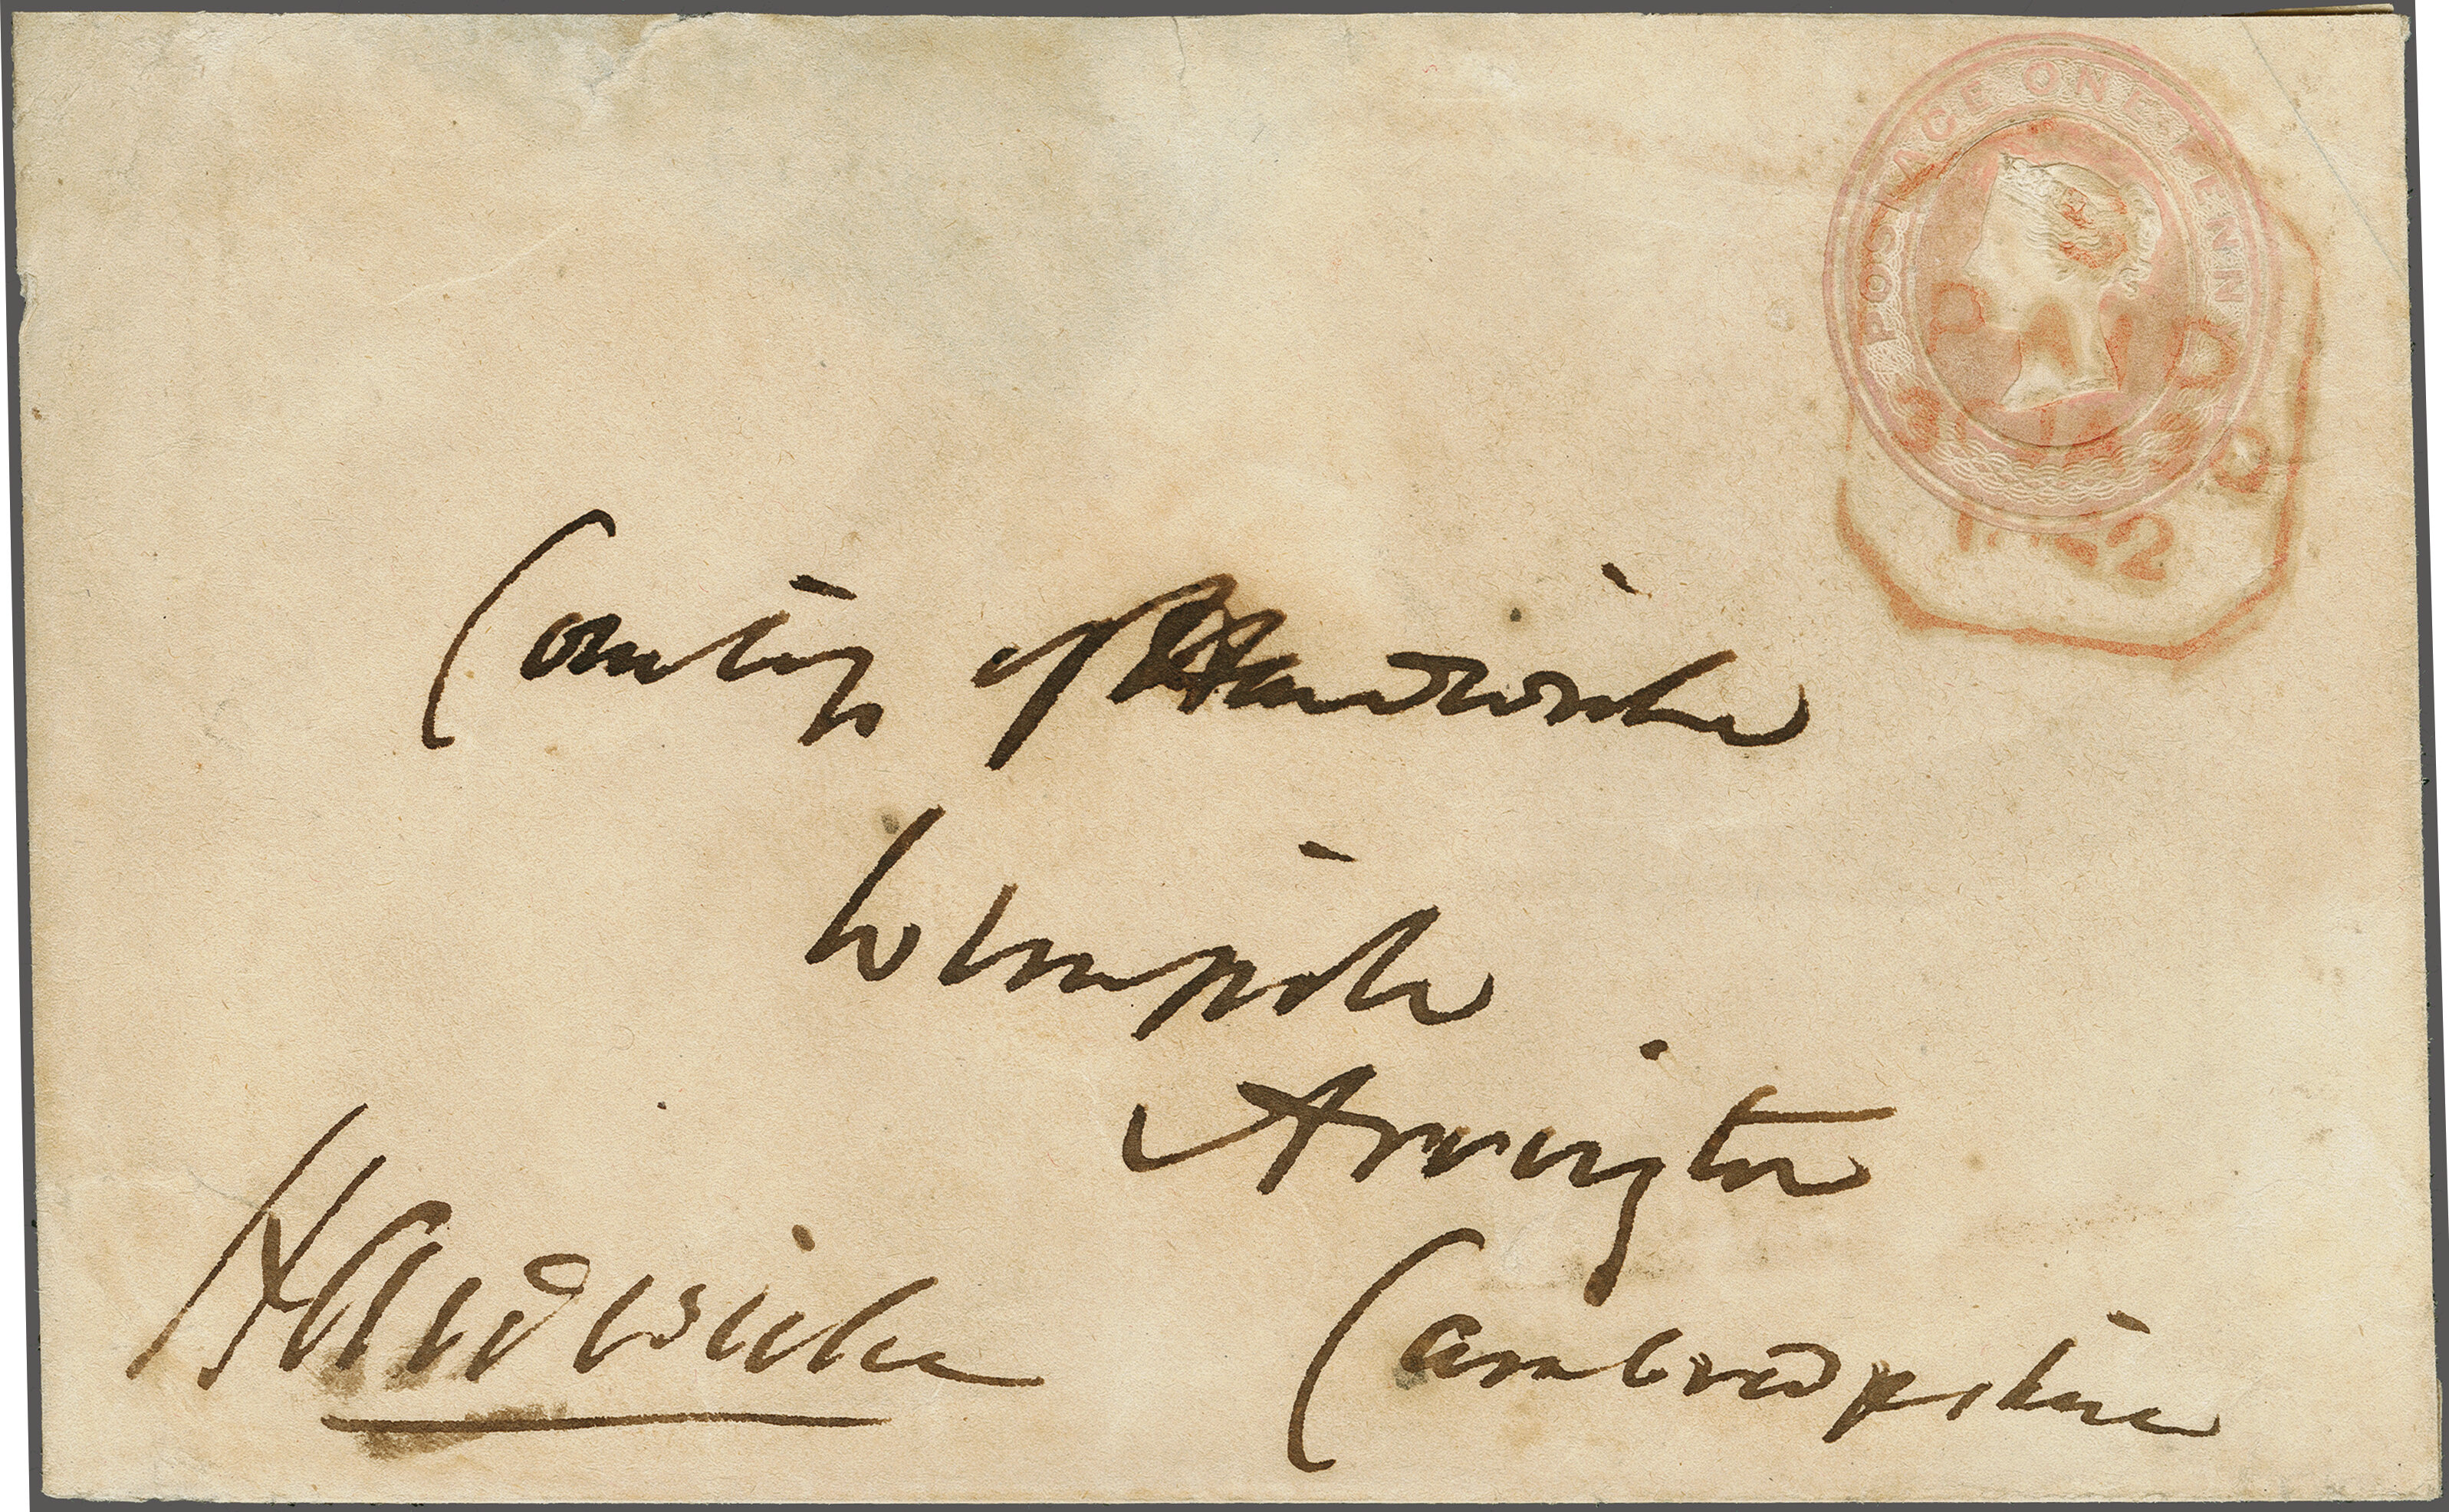 POSTAGE ONE PENNY
PAID
1852
Countss of Hardwicke
Wimpole
Arrington
Cambridgeshire
Hardwicke